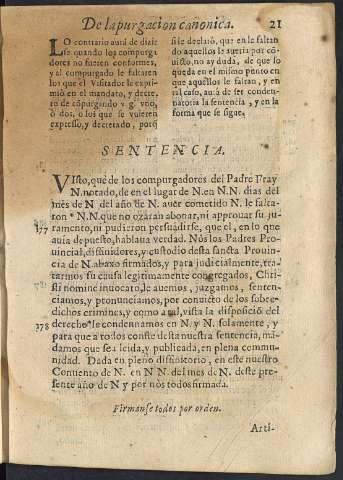 De la purgacion canonica. 21
LO contrario aurà de dizir
se quando los compurga
dores no fueren conformes,
y al compurgado le faltaren
los que el Visitador le exprí
mio en el mandato, y decre,
to de cõpurgãndo v. g. vno,
ò dos. o los que se vuieren
expresso, y decretado, porq̃
si le declarò, que en le faltan
do aquellos le aueria por cõ
uicto, no ay duda, de que lo
queda en el mismo punto en
que aquellos le faltan, y en
tal caso, aurà de ser conden-
natoria la sentencia, y en la
forma que se sigue.
SENTENCIA.
VIsto, que de los compurgadores del Padre Fray
N. notado, de en el lugar de N. en N N. dias del
mes de N del año de N. auer cometido N. le falta-
ron * N. N. que no ozaran abonar, ni approuar su ju-
377 ramento, ni pudieron persuadirse, que el, en lo que
auia depuesto, hablaua verdad. Nòs los Padres Pro-
uincial, diffinidores, y custodio desta sancta Prouin-
cia de N. abaxo firmados, y para judicialmente, tra-
tarmos su causa legitimamente congregados, Chri-
sti nomine inuocato, le auemos, juzgamos, senten-
ciamos, y pronunciamos, por conuicto de los sobre-
dichos crimines, y como a tal, vista la disposiciõ del
378 derecho * le condennamos en N. y N. solamente, y
para que a todos conste desta nuestra sentencia, mã-
damos que sea leida, y publicada, en plena commu-
nidad. Dada en pleno diffinitorio, en este nuestro
Conuento de N. en N N. del mes de N. deste pre-
sente año de N y por nòs todos firmada.
Firmanse todos por orden.
Arti-